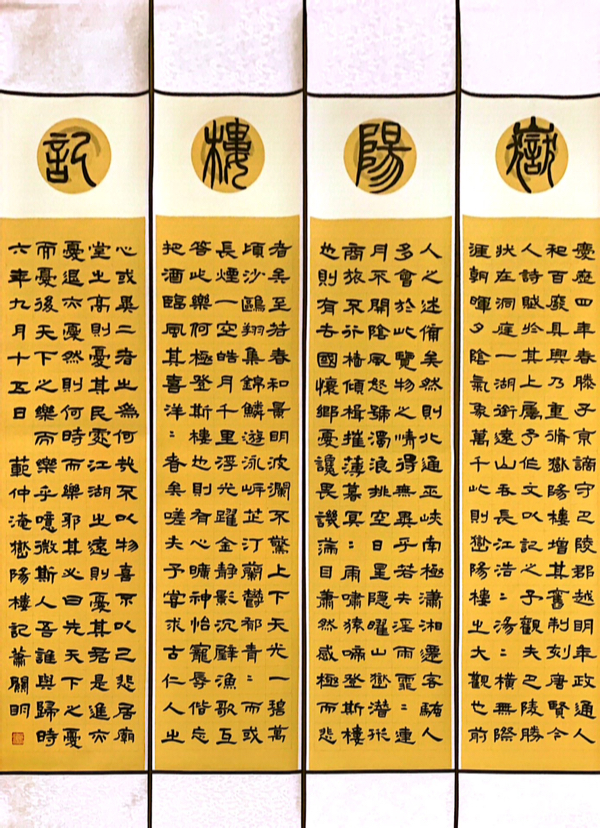 嶽
慶歷四年春滕子京謫守巴陵郡越明年政通人
和百廢具興乃重脩嶽陽樓增其舊制刻唐賢今
人詩賦於其上屬予作文以記之予觀夫巴陵勝
狀在洞庭一湖銜遠山吞長江浩:湯:橫無際
涯朝暉夕陰氣象萬千此則嶽陽樓之大觀也前
陽
人之述備矣然則北通巫峽南極瀟湘遷客騷人
多會於此覽物之情得無異乎若夫淫雨霏:連
月不開陰風怒號濁浪排空日星隱曜山嶽潛形
商旅不行檣傾楫摧薄暮冥:嘯猿啼登斯樓
也則有去國懷鄉憂讒畏譏滿目蕭然感極而悲
樓
者矣至若春和景明波瀾不驚上下天光一碧萬
頃沙鷗翔集錦鱗游泳岸芷汀蘭鬱郁青:而或
長煙一空皓月千里浮光躍金靜影沉璧漁歌互
答此樂何極登斯樓也則有心曠神怡寵辱偕忘
把酒臨風其喜洋:者矣嗟夫予嘗求古仁人之
記
心或異二者之為何哉不以物喜不以己悲居廟
堂之高則憂其民處江湖之遠則憂其君是進亦
憂退亦憂然則何時而樂邪其必曰先天下之憂
而憂後天下之樂而樂乎噫微斯人吾誰與歸時
六年九月十五日 範仲淹嶽陽樓記蕭關明